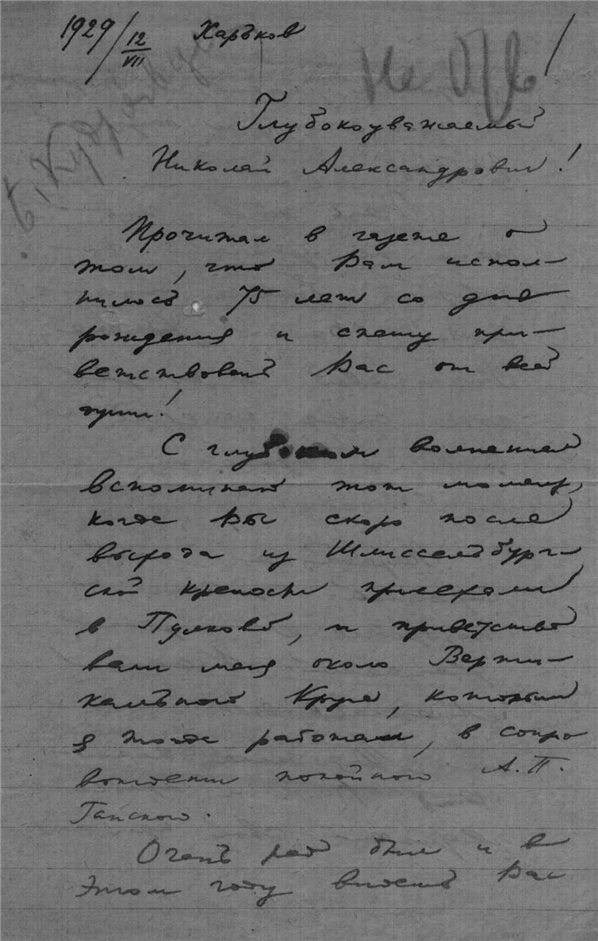 1929/12/VII Харьков
На Отв
Глубокоуважаемый
Николай Александрович!
Прочитал в газете о
том, что Вам испол-
нилось 75 лет со дня
рождения и спешу при-
ветствовать Вас от всей
души!
С глубоким волнением
вспоминаю тот момент,
когда Вы скоро после
выхода из Шлиссельбург-
ской крепости приехали
в Пулково, и приветство
вали меня около Верти-
кального Круга, которым
я тогда работал, в сопро
вождении покойного А.П.
Ганского.
Очень рад был и в
этом году видеть Вас